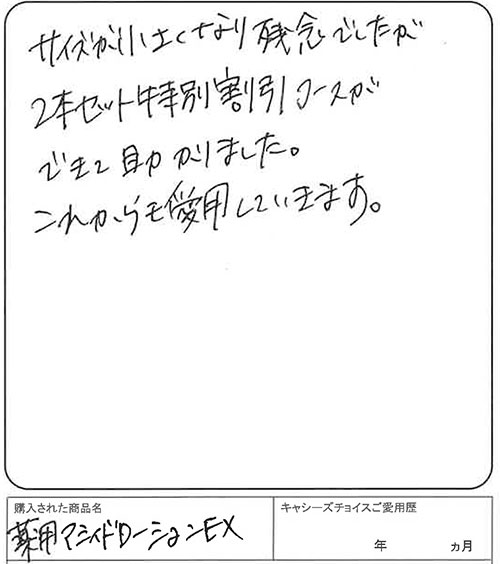 サイズが小さくなり残念でしたが
2本セット特別割引コースが
できて助かりました。
これからも愛用していきます。
購入された商品名
薬用アミノイドローションEX
キャシーズチョイスご愛用歴
年 ヵ月